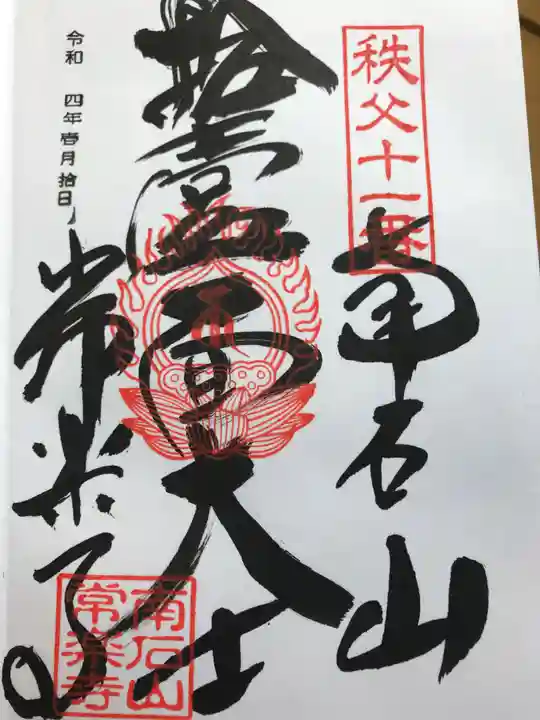 秩父十一番
南石山
拾壹面大士
令和 四年壱月拾日
常楽寺
南石山
常楽寺